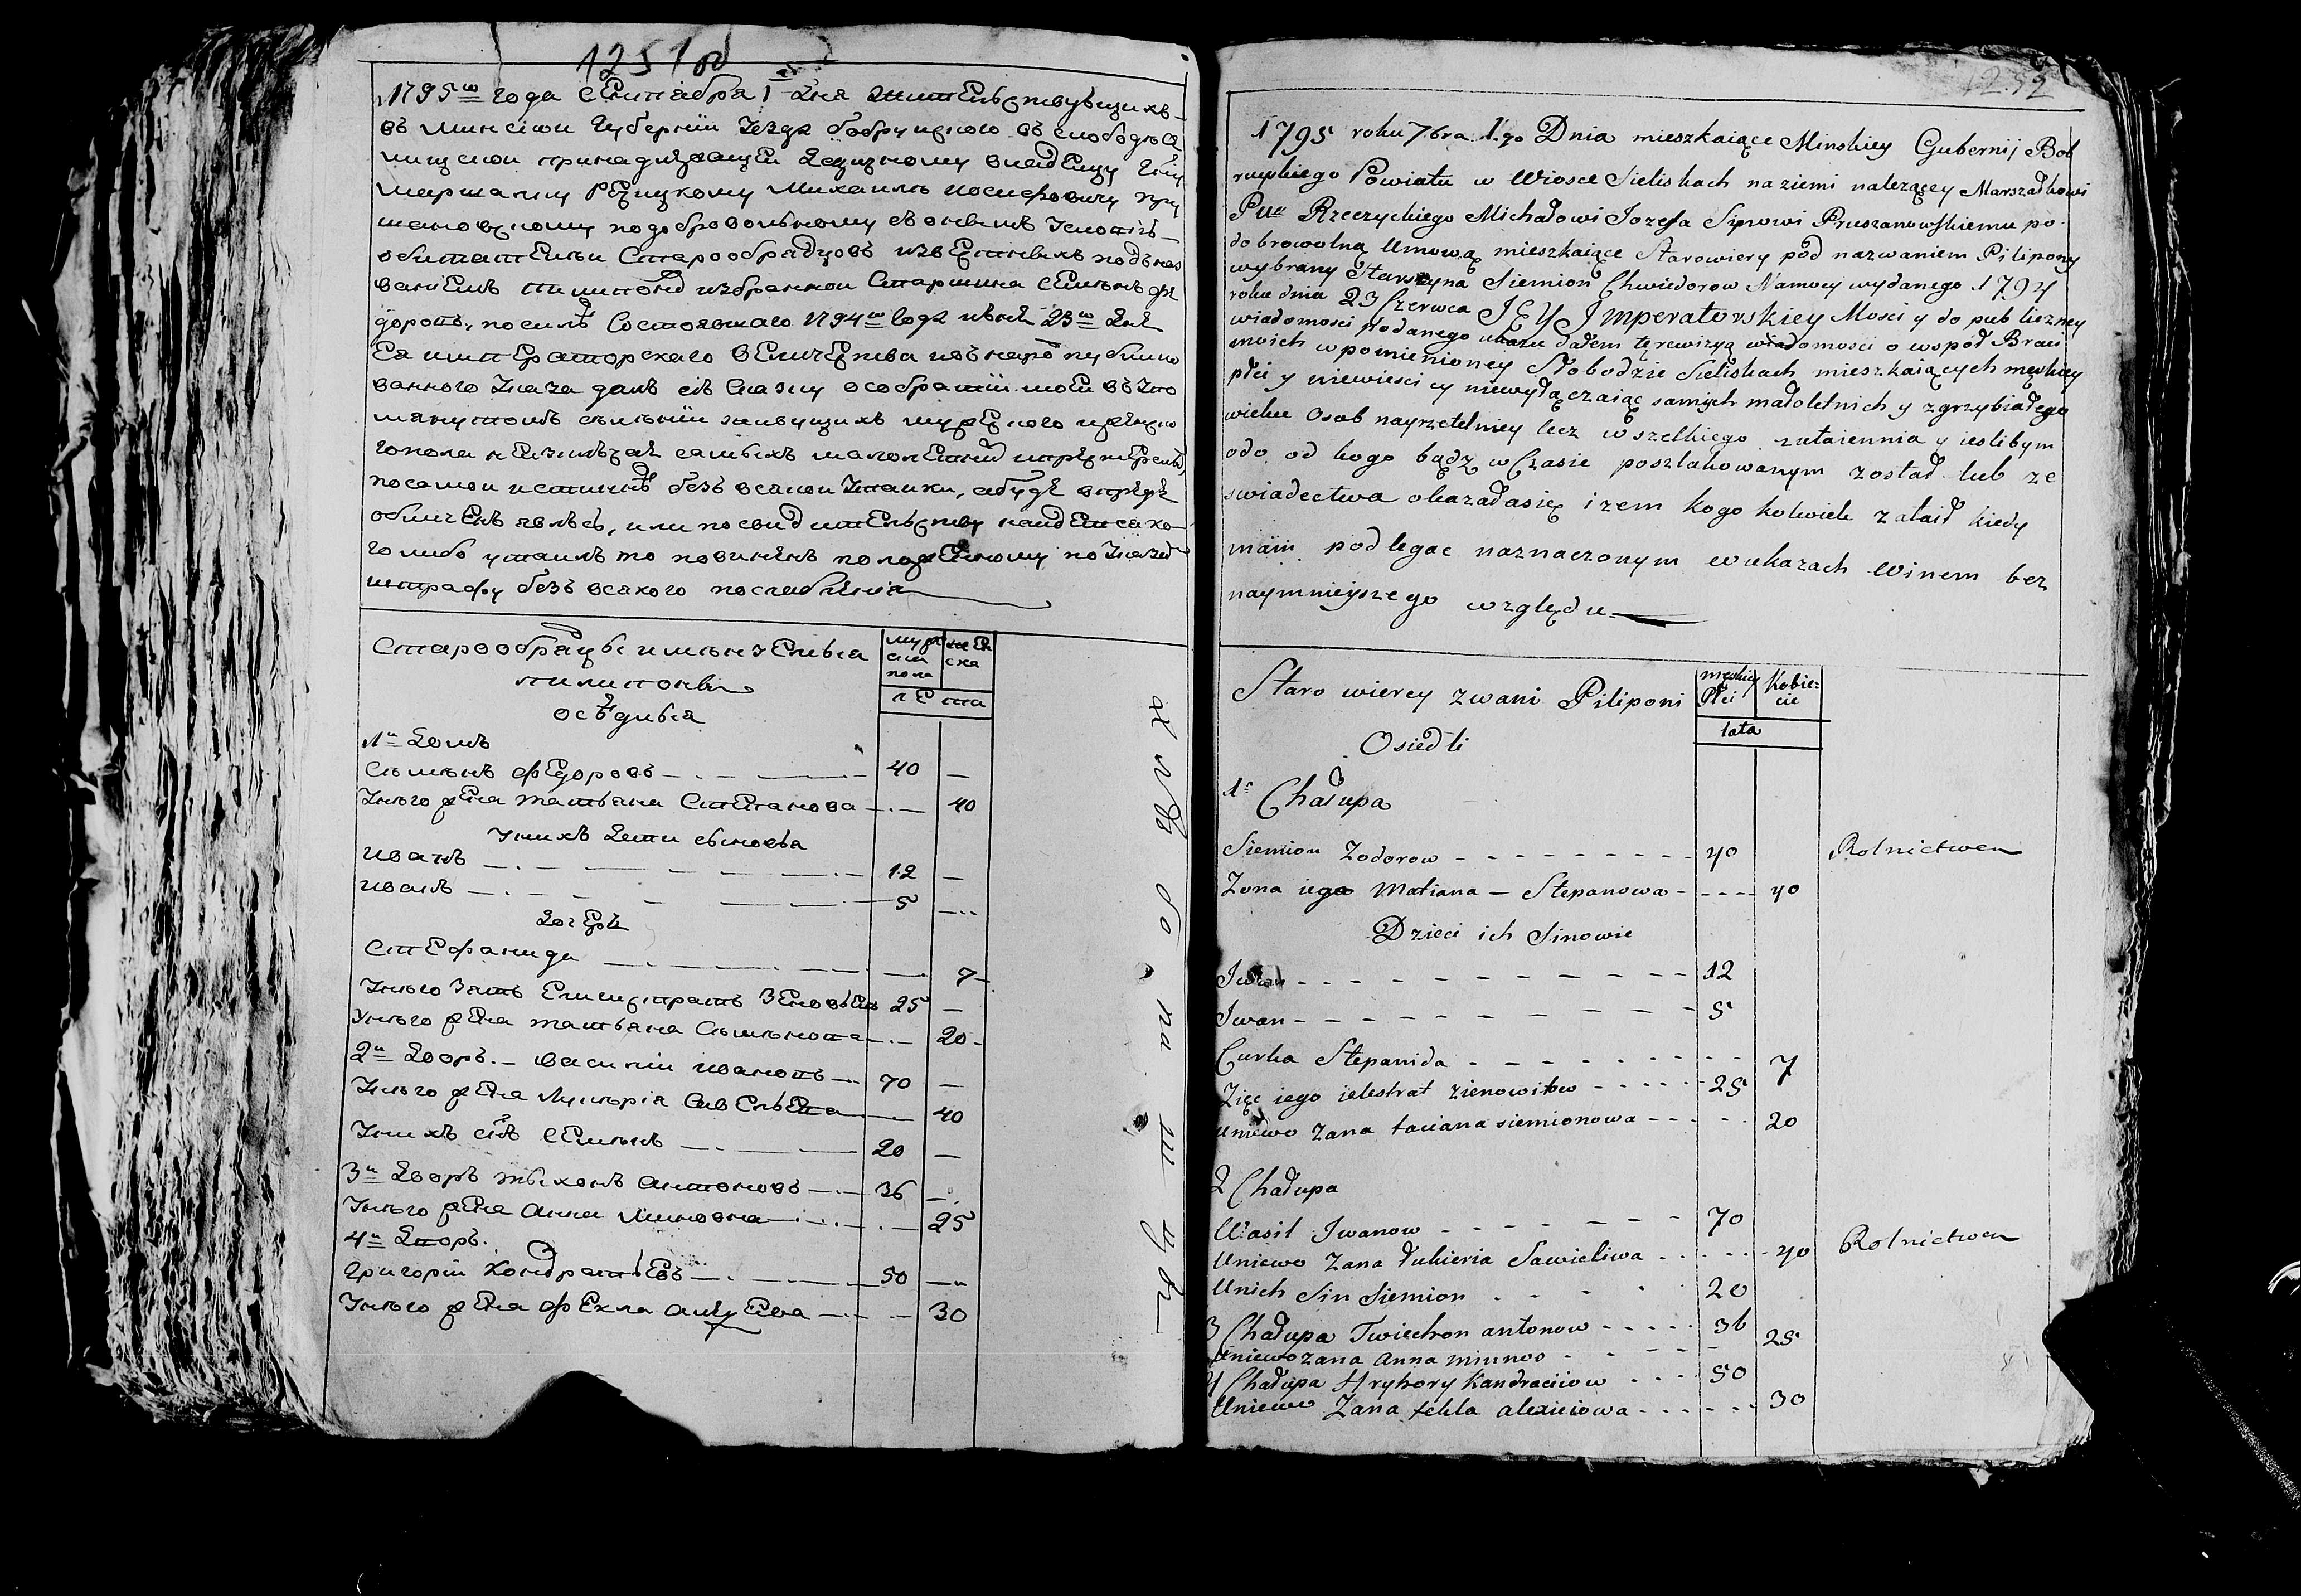 1251 об
1795го года сентября 1 дня жительствующихъ
въ минской губерніи уезда бобруцкого въ слободѣ се
лищской принадлежащей здешнему владелцу гну
маршалку речицкому Михаилѣ иосифовичу пру
шановскому подобровольному съ онымъ условію
обитатели Старообрядцовъ известныхъ подъ наз
ваніемъ пилиповъ избранной старшина семенъ фе
доровъ, по силѣ состоявшаго 1794го года июня 23го дня
Ея императорскаго величества и въ народъ публико
ванного указа далъ сію сказку о собратіи моей въ упо
мянутомъ селеніи живущихъ мужеского и женско
го пола не изключая самыхъ малолетнихъ и престарелыхъ
по самой истиннѣ безъ всякой утайки, а буде впредь
обличенъ явлюсь, или по свидительству найдется ко
го либо утаилъ то повиненъ положенному по указамъ
штрафу безъ всякого послабленія
Старообрядцы именуемыя
пилипоны
осѣдлыя
мужеска пола
женска
лета
1й домъ
Сымонъ федоровъ 40 —
У него жена татьяна Степанова — 40
У нихъ дети сыновья
иванъ 12 —
иванъ 5 —
дочерь
Стефанида — 7
У него зять Елистратъ Зеновьевъ 25 —
У него жена татьяна Сымонова — 20
2й дворъ. — василій ивановъ 70 —
У него жена лукерія Савельева — 40
У нихъ сынъ семенъ 20 —
3й дворъ тыхонъ антоновъ 36 —
У него жена анна миновна — 25
4й дворъ.
григорій Кондратьевъ 50 —
У него жена фекла алексеева — 30
1252
1795 roku 7bra 1go Dnia mieszkaiące Minskiey Gubernij Bob
ruyskiego Powiatu w Wiosce Sieliskach na ziemi należącey Marszałkowi
Ptu Rzeczyckiego Michałowi Jozefa Synowi Pruszanowskiemu po
dobrowolną Umową mieszkaiące Starowiery pod nazwaniem Pilipony
wybrany Starszyna Siemion Chwiedorow Namocy wydanego 1794
roku dnia 23 Czerwca JEY Imperatorskiey Mosci y do publiczney
wiadomosci podanego ukazu dałem tę rewizyą wiadomosci o wspoł Braci
moich wpomienioney Słobodzie Sieliskach mieszkaiących męskiey
płci y niewiescicy niewyłączaiąc samych małoletnich y zgrzybiałego
wieku Osob nayrzetelniey bez wszelkiego utaiennia y ieslibym
odo od kogo bądz w Czasie poszlakowanym został lub ze
swiadectwa okazałasię izem kogo kolwiek zataił kiedy
mam podlegac naznaczonym wukazach Winem bez
naymnieyszego względu
Staro wiercy zwani Piliponi
męskiey Płci
Kobie=
cie
Osiedli
lata
1a Chałupa
Siemion Zodorow 40 Rolnictwem
Zona iego Matiana — Stepanowa 40
Dzieci ich Sinowie
Iwan 12
Iwan 5
Curka Stepanida 7
Zięc iego ielestrat zienowiiow 25
Uniewo zana taciana siemionowa 20
2 Chałupa
Wasil Iwanow 70
Uniewo Zana Łukieria Sawieliwa 40 Rolnictwem
Unich Sin Siemion 20
3 Chałupa Twiechon antonow 36
Uniewo zana Anna minnow 25
4 Chałupa Hryhory Kandraciiow 50
Uniewo Zana tekla alexieiowa 30